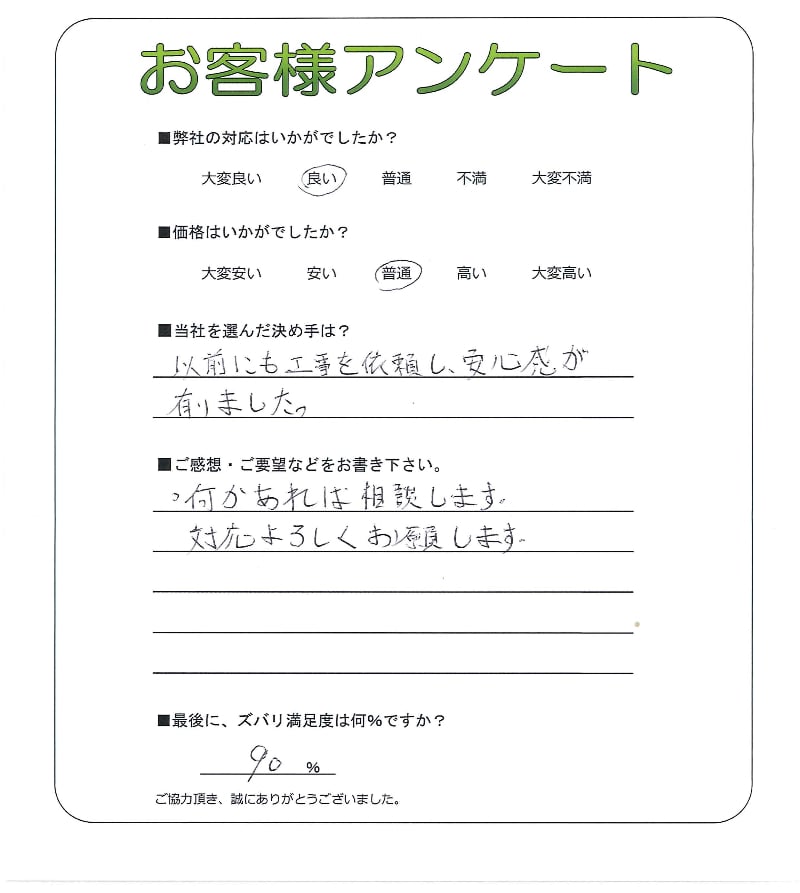 お客様アンケート
■弊社の対応はいかがでしたか？
大変良い 良い 普通 不満 大変不満
■価格はいかがでしたか？
大変安い 安い 普通 高い 大変高い
■当社を選んだ決め手は？
以前にも工事を依頼し、安心感が
有りました。
■ご感想・ご要望などをお書き下さい。
何かあれば相談します。
対応よろしくお願します。
■最後に、ズバリ満足度は何%ですか？
90 %
ご協力頂き、誠にありがとうございました。